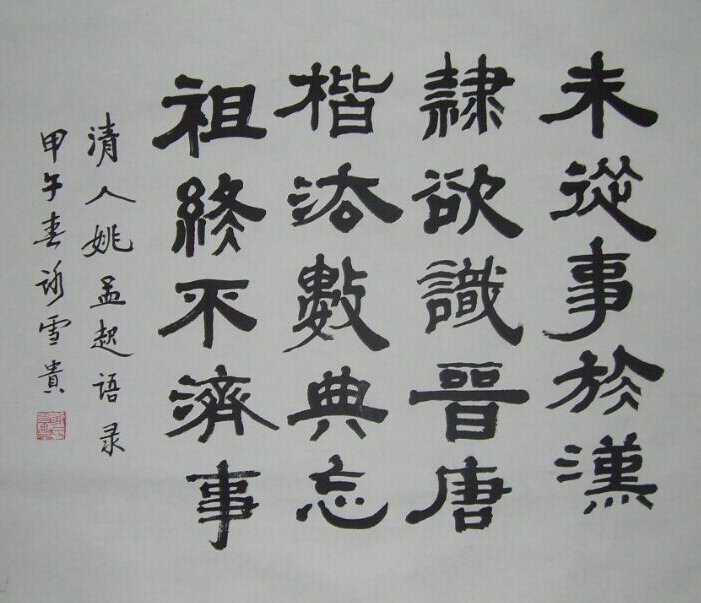 未從事於漢
隸欲識晉唐
楷法數典忘
祖終不濟事
清人姚孟起语录
甲午春 雪貴